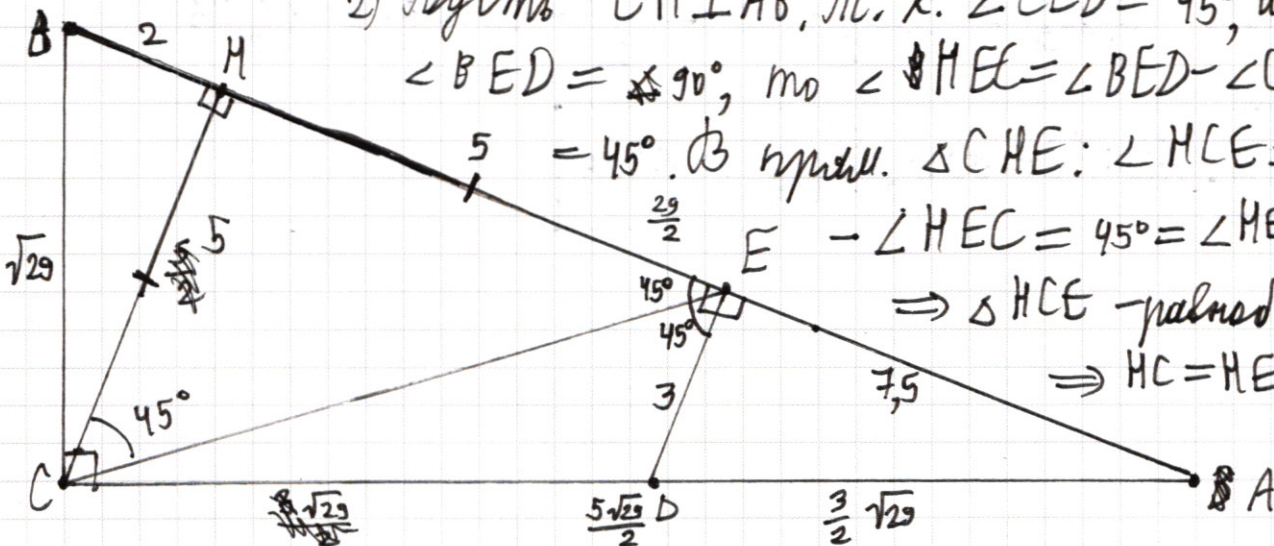 2) Пусть CH⊥AB, т. к. ∠CED = 45°,
∠BED = 90°, то ∠HEC = ∠BED -
= 45°. В прям. △CHE: ∠HCE
- ∠HEC = 45° =
⇒ △HCE -
⇒ HC = HE
B
2
H
5
29/2
E
√29
5
45°
45°
3
7,5
45°
C
5√29/2
D
3/2 √29
A